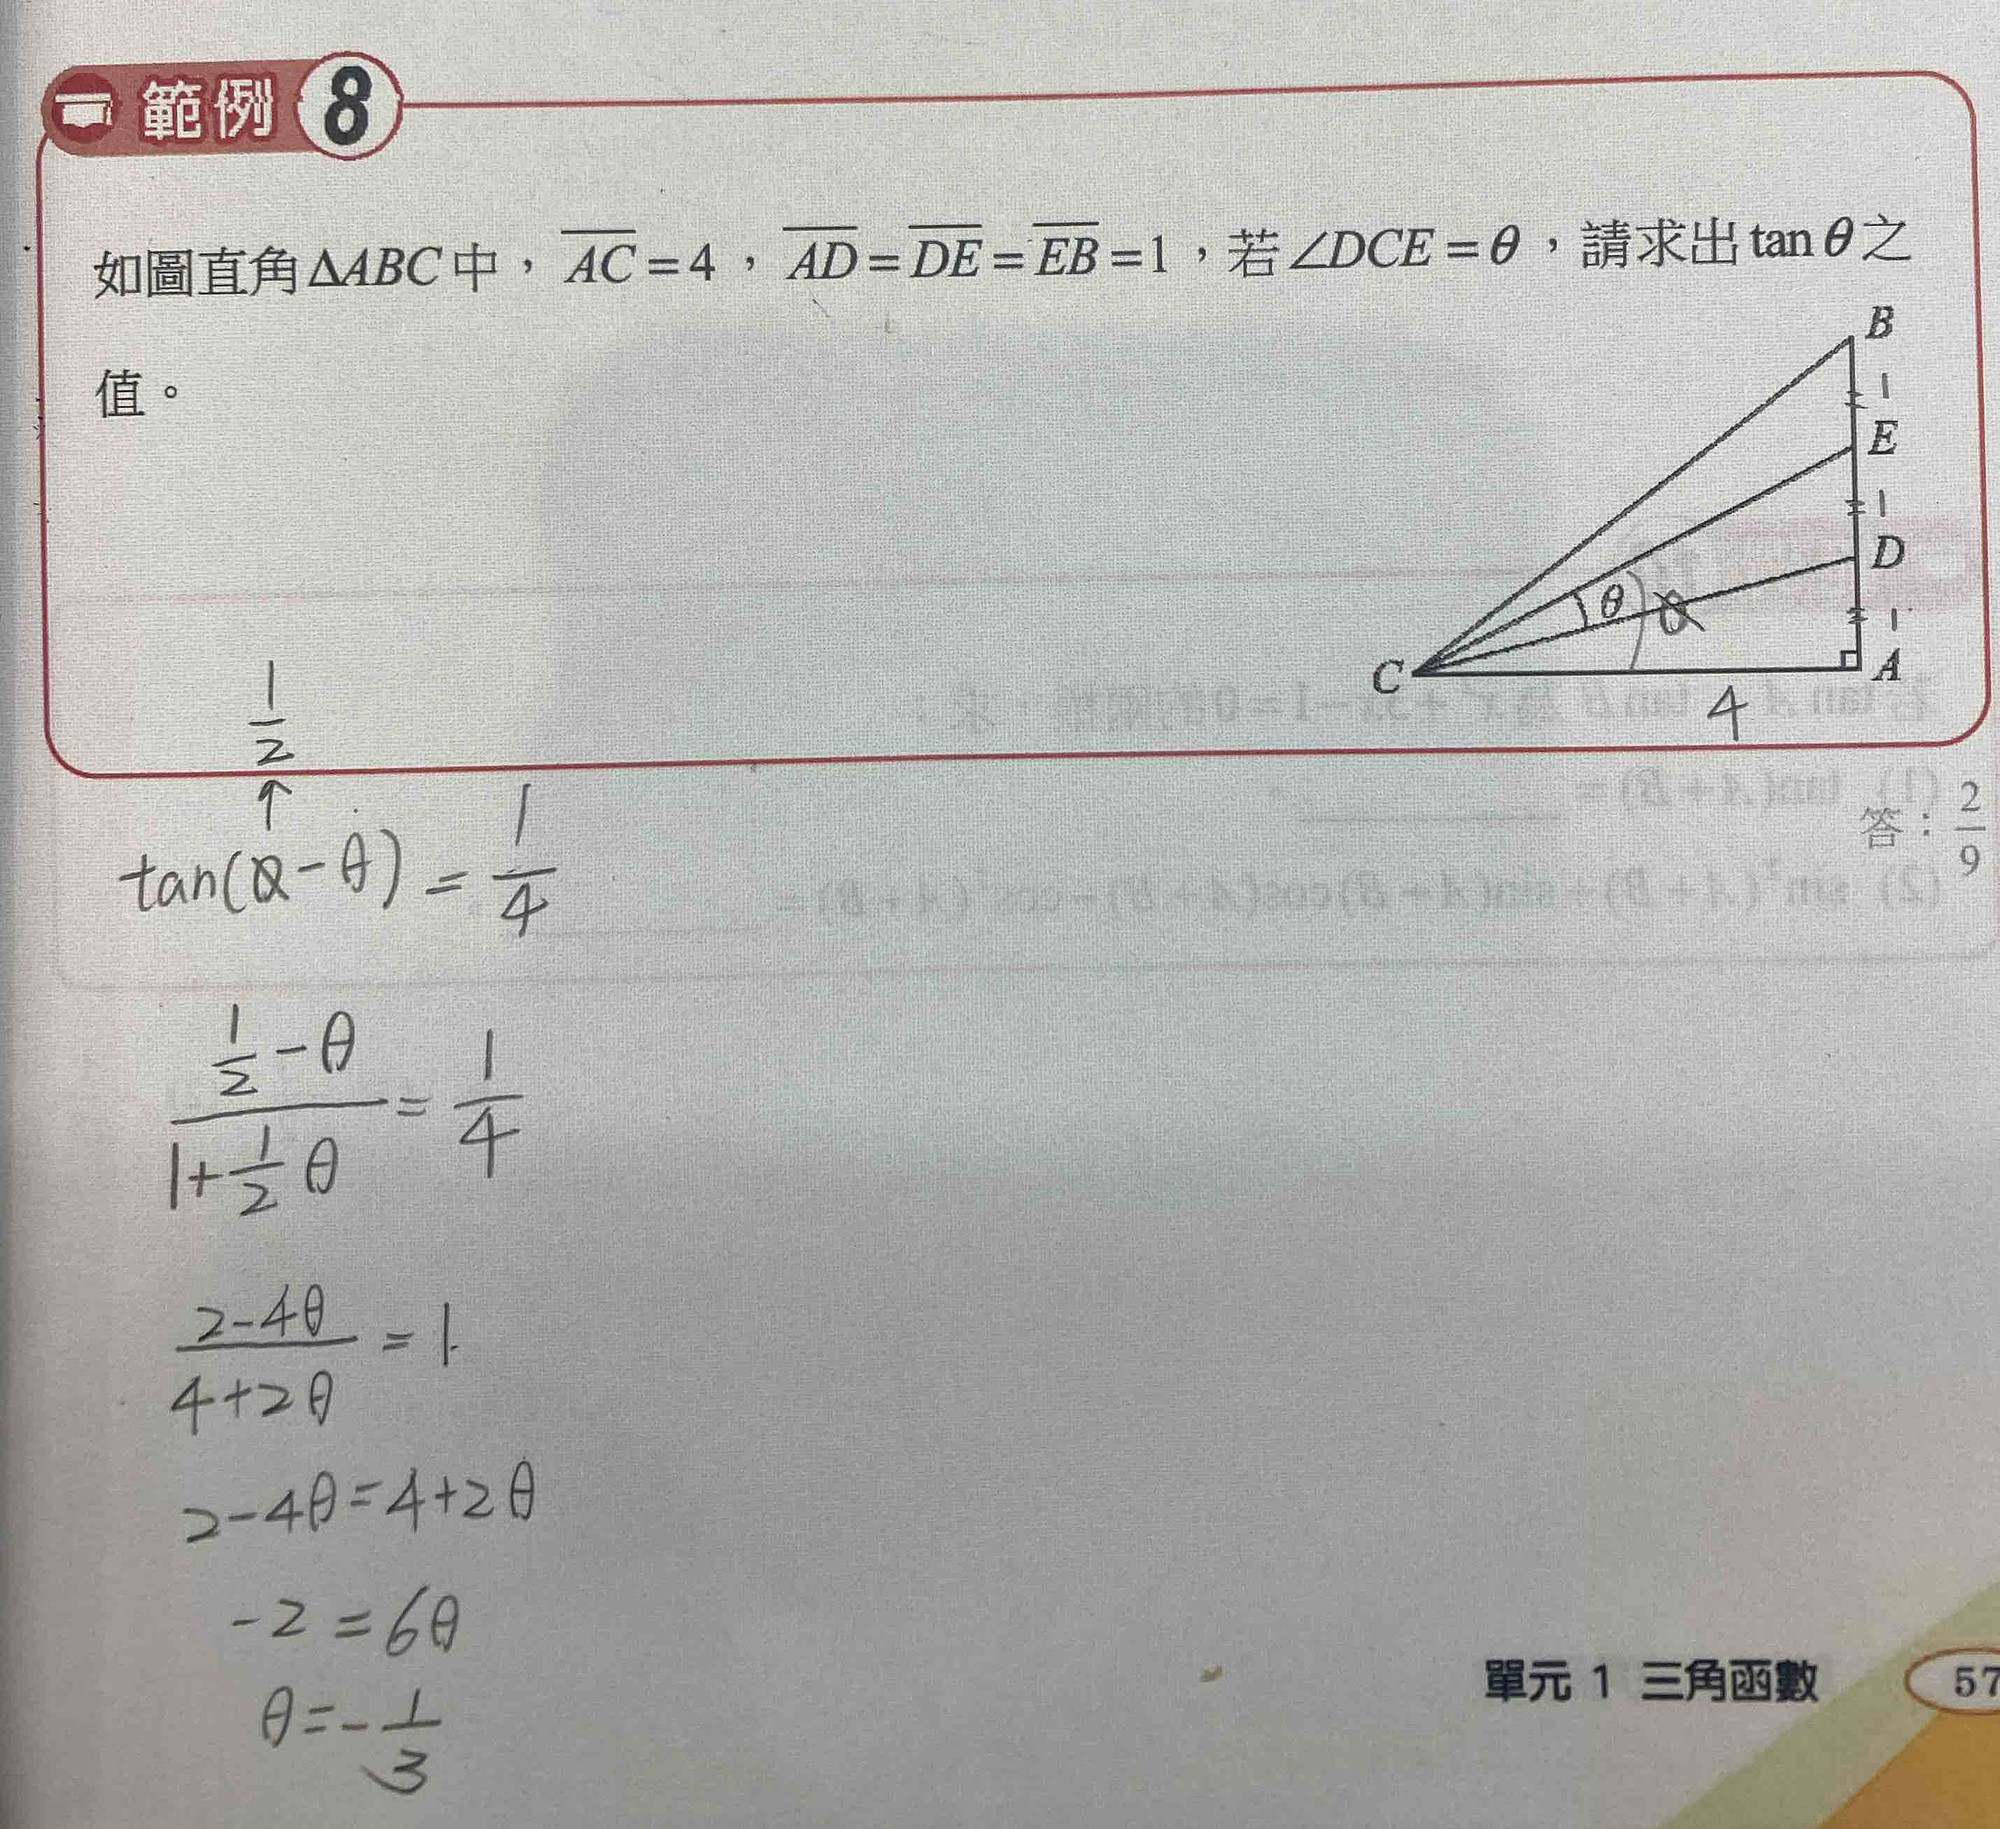 範例 8
如圖直角ΔABC中，AC=4，AD=DE=EB=1，若∠DCE=θ，請求出tanθ之
值。
B
1
E
1
D
θ
α
1
C
A
4
答：2/9
1/2
↑
tan(α-θ)=1/4
(1/2-θ)/(1+1/2θ)=1/4
(2-4θ)/(4+2θ)=1
2-4θ=4+2θ
-2=6θ
θ=-1/3
單元 1 三角函數
57